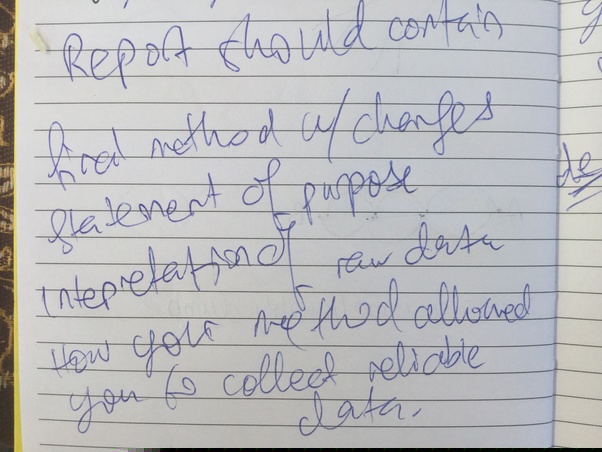 Report should contain
final method w/ changes
statement of purpose
intepretation of raw data
How your method allowed
you to collect reliable
data.
de